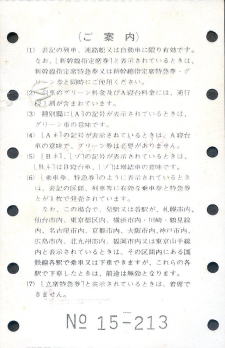 (ご案内)
(1) 表記の列車、連絡船又は自動車に限り有効です。
なお、〔新幹線指定席〕と表示されているときは、
新幹線指定席特急券又は新幹線指定席特急券・グ
リーン券と同時にご使用ください。
(2) 列車のグリーン料金及びA寝台料金には、通行
税 が含まれています。
(3) 種別欄に〔A〕の記号が表示されているときは、
グリーン車の意味です。
(4) 〔A 〕の記号が表示されているときは、A寝台
車の意味で、グリーン券は必要がありません。
(5) 〔B 〕、〔 〕の記号が表示されているときは、
(6) 〔乗車券、特急券〕のように表示されているとき
は、表記の区間、列車等に有効な乗車券と特急券
とが1枚で発売されています。
なお、この場合で、発駅又は着駅が、札幌市内、
仙台市内、東京都区内、横浜市内・川崎・鶴見線
内、名古屋市内、京都市内、大阪市内、神戸市内、
広島市内、北九州市内、福岡市内又は東京山手線
内と表示されているときは、その区間内にある国
鉄線各駅で乗車又は下車できますが、これらの各
駅で下車したときは、前途は無効となります。
(7) 〔立席特急券〕と表示されているときは、着席で
きません。
No 15-213